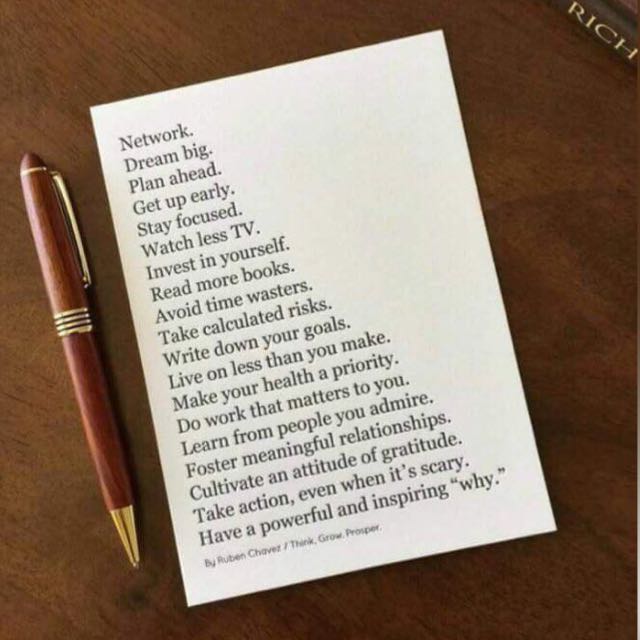 RICH
Network.
Dream big.
Plan ahead.
Get up early.
Stay focused.
Watch less TV.
Invest in yourself.
Read more books.
Avoid time wasters.
Take calculated risks.
Write down your goals.
Live on less than you make.
Make your health a priority.
Do work that matters to you.
Learn from people you admire.
Foster meaningful relationships.
Cultivate an attitude of gratitude.
Take action, even when it's scary.
Have a powerful and inspiring “why.”
By Ruben Chavez / Think, Grow, Prosper.